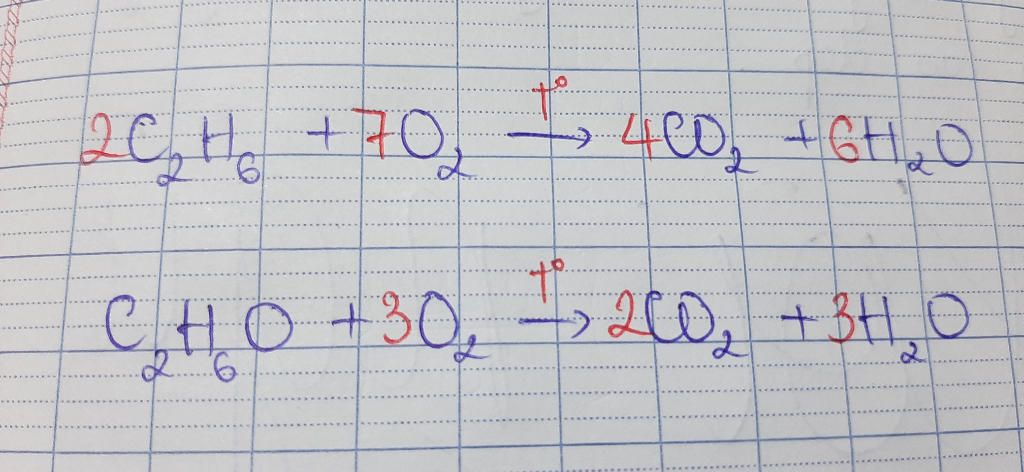 2C₂H₆ + 7O₂ —t°→ 4CO₂ + 6H₂O
C₂H₆O + 3O₂ —t°→ 2CO₂ + 3H₂O